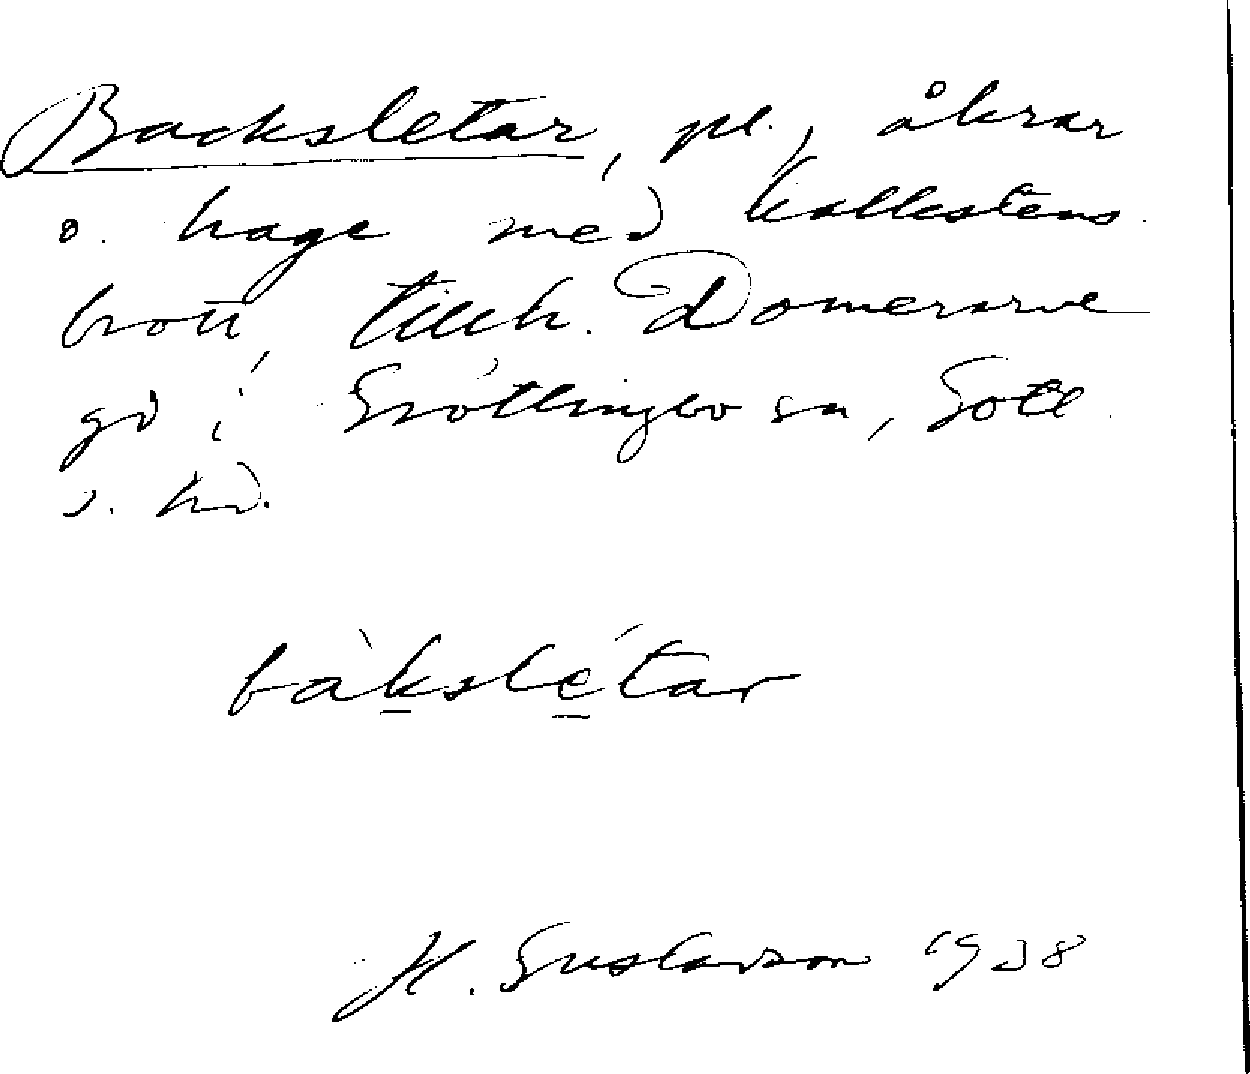 Backsletar, pl., åkrar
o. hage med kalkstens
brott, tillh. Domerarve
gd i Grötlingbo sn, Gotl
s. hd.
bàkslétar
H. Gustavson 1938